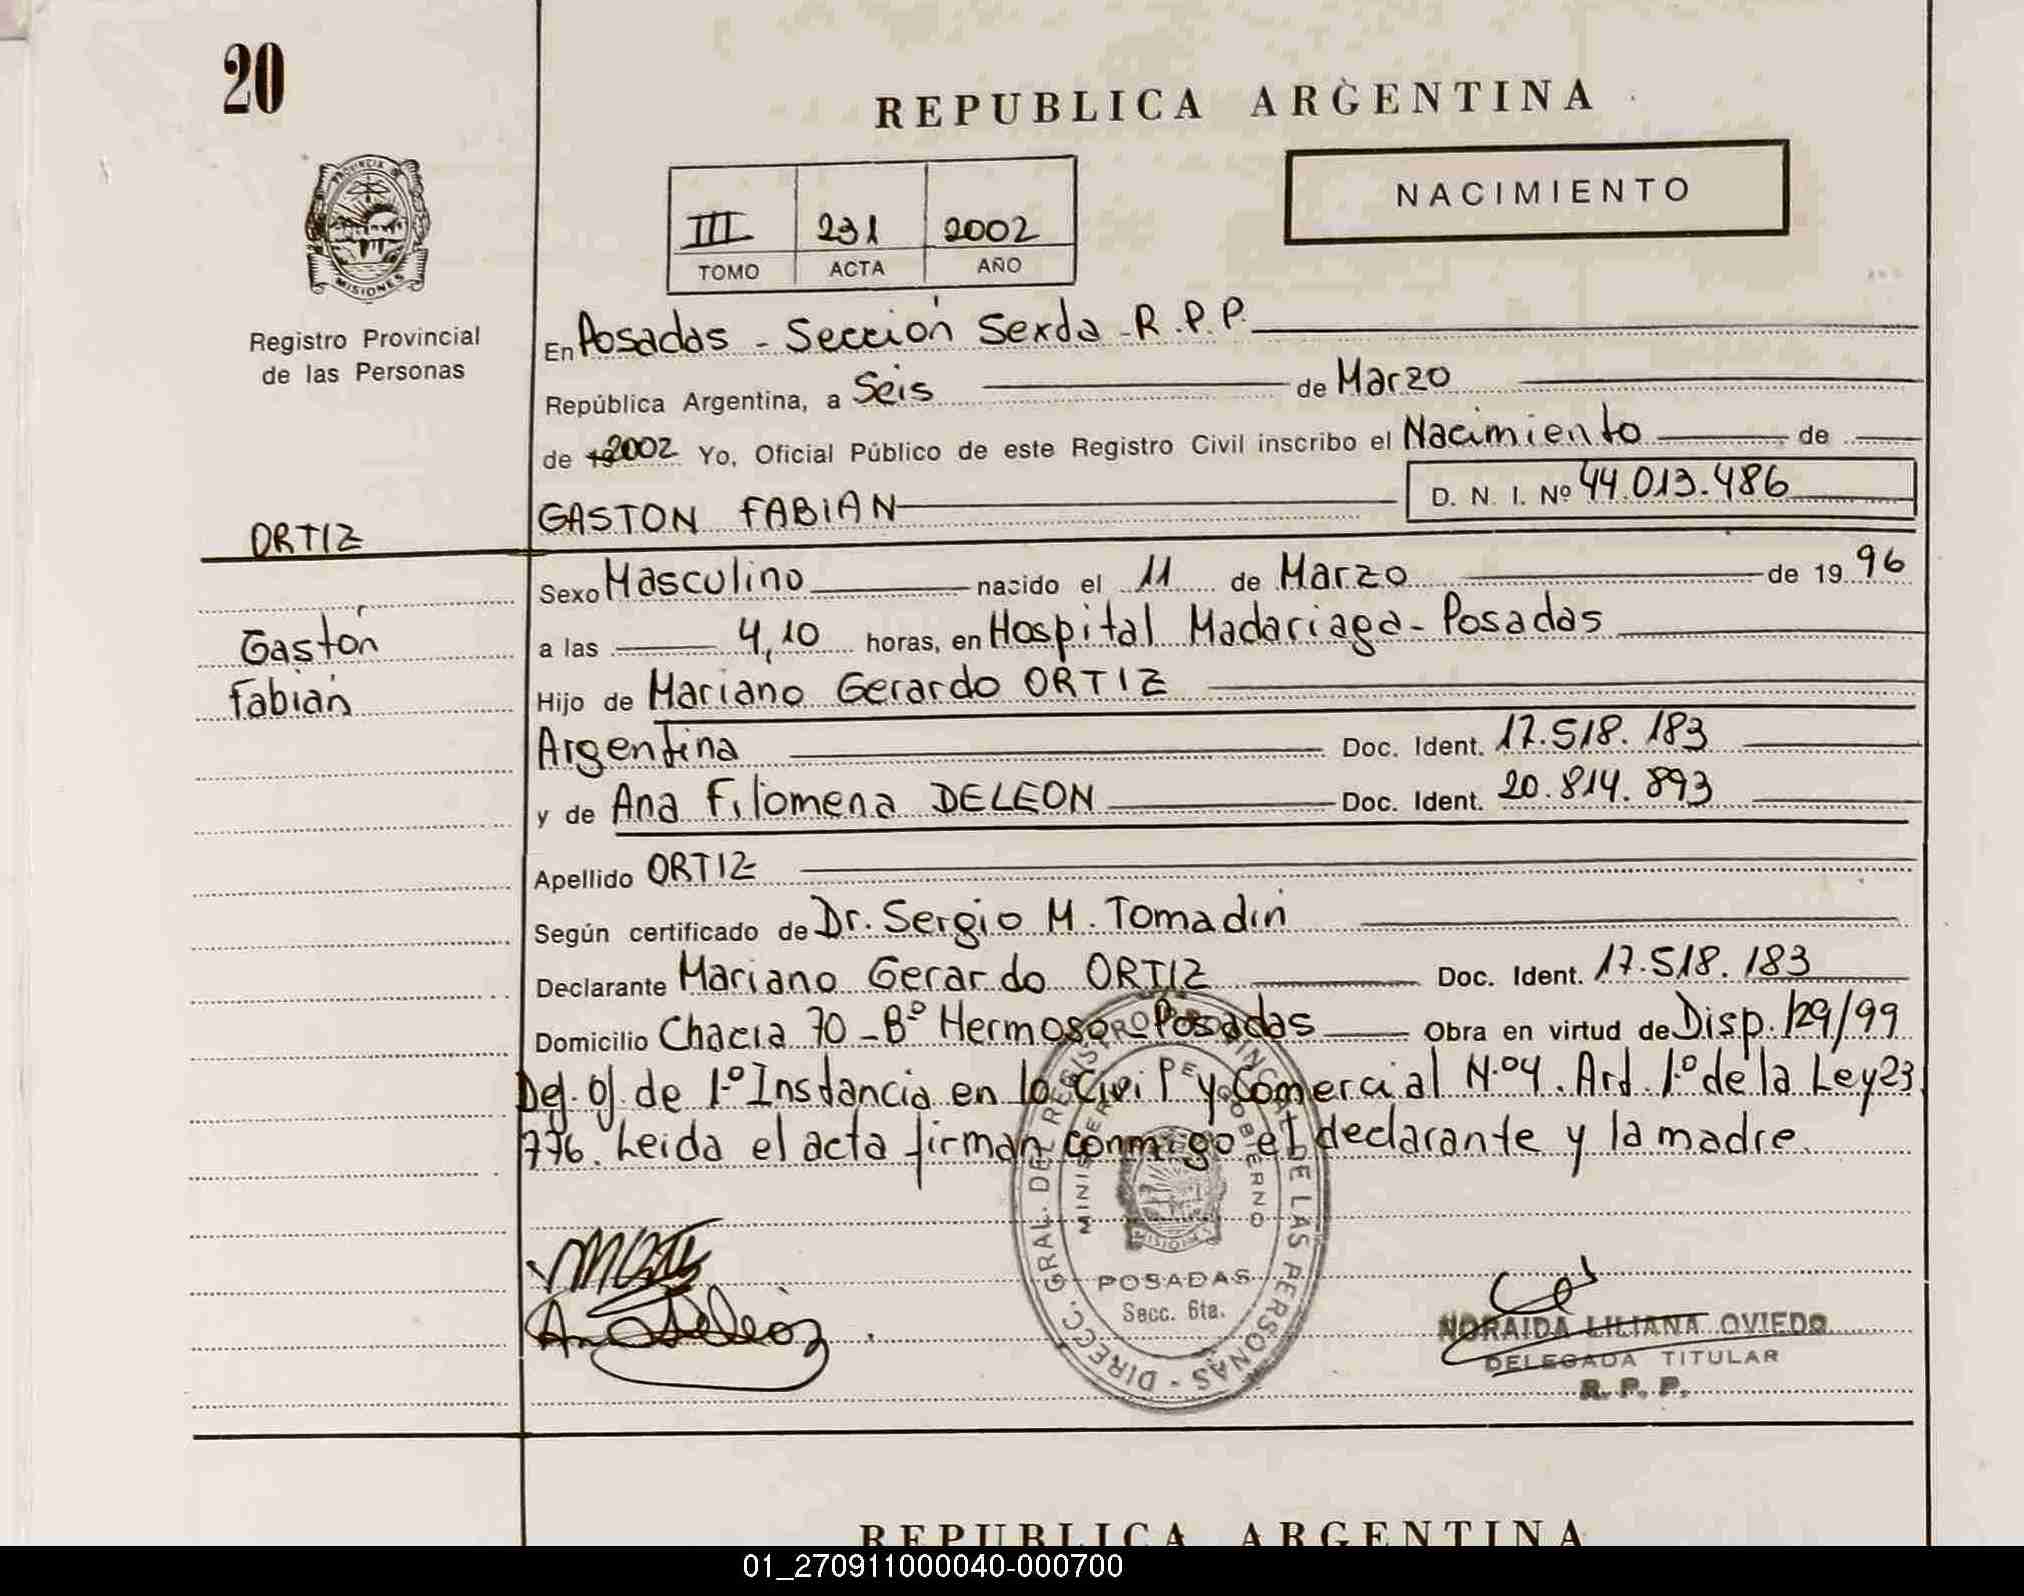 20
REPUBLICA ARGENTINA
NACIMIENTO
III 231 2002
TOMO ACTA AÑO
PROVINCIA DE MISIONES
Registro Provincial
de las Personas
En Posadas - Sección Sexta - R.P.P.
República Argentina, a Seis de Marzo
de 2002 Yo, Oficial Público de este Registro Civil inscribo el Nacimiento de
GASTON FABIAN D. N. I. Nº 44.013.486
ORTIZ
Gastón
Fabián
Sexo Masculino nacido el 11 de Marzo de 1996
a las 4,10 horas, en Hospital Madariaga - Posadas
Hijo de Mariano Gerardo ORTIZ
Argentina Doc. Ident. 17.518.183
y de Ana Filomena DELEON Doc. Ident. 20.814.893
Apellido ORTIZ
Según certificado de Dr. Sergio M. Tomadín
Declarante Mariano Gerardo ORTIZ Doc. Ident. 17.518.183
Domicilio Chacra 70 - Bº Hermoso - Posadas Obra en virtud de Disp. 129/99
Def. Of. de 1º Instancia en lo Civil y Comercial Nº 4. Art. 1º de la Ley 23.
776. Leida el acta firman conmigo el declarante y la madre.
DIRECC. GRAL. DEL REGISTRO PROVINCIAL DE LAS PERSONAS
MINISTERIO DE GOBIERNO
MISIONES
POSADAS
Secc. 6ta.
Ana Deleon
NORAIDA LILIANA OVIEDO
DELEGADA TITULAR
R. P. P.
REPUBLICA ARGENTINA
01_270911000040-000700